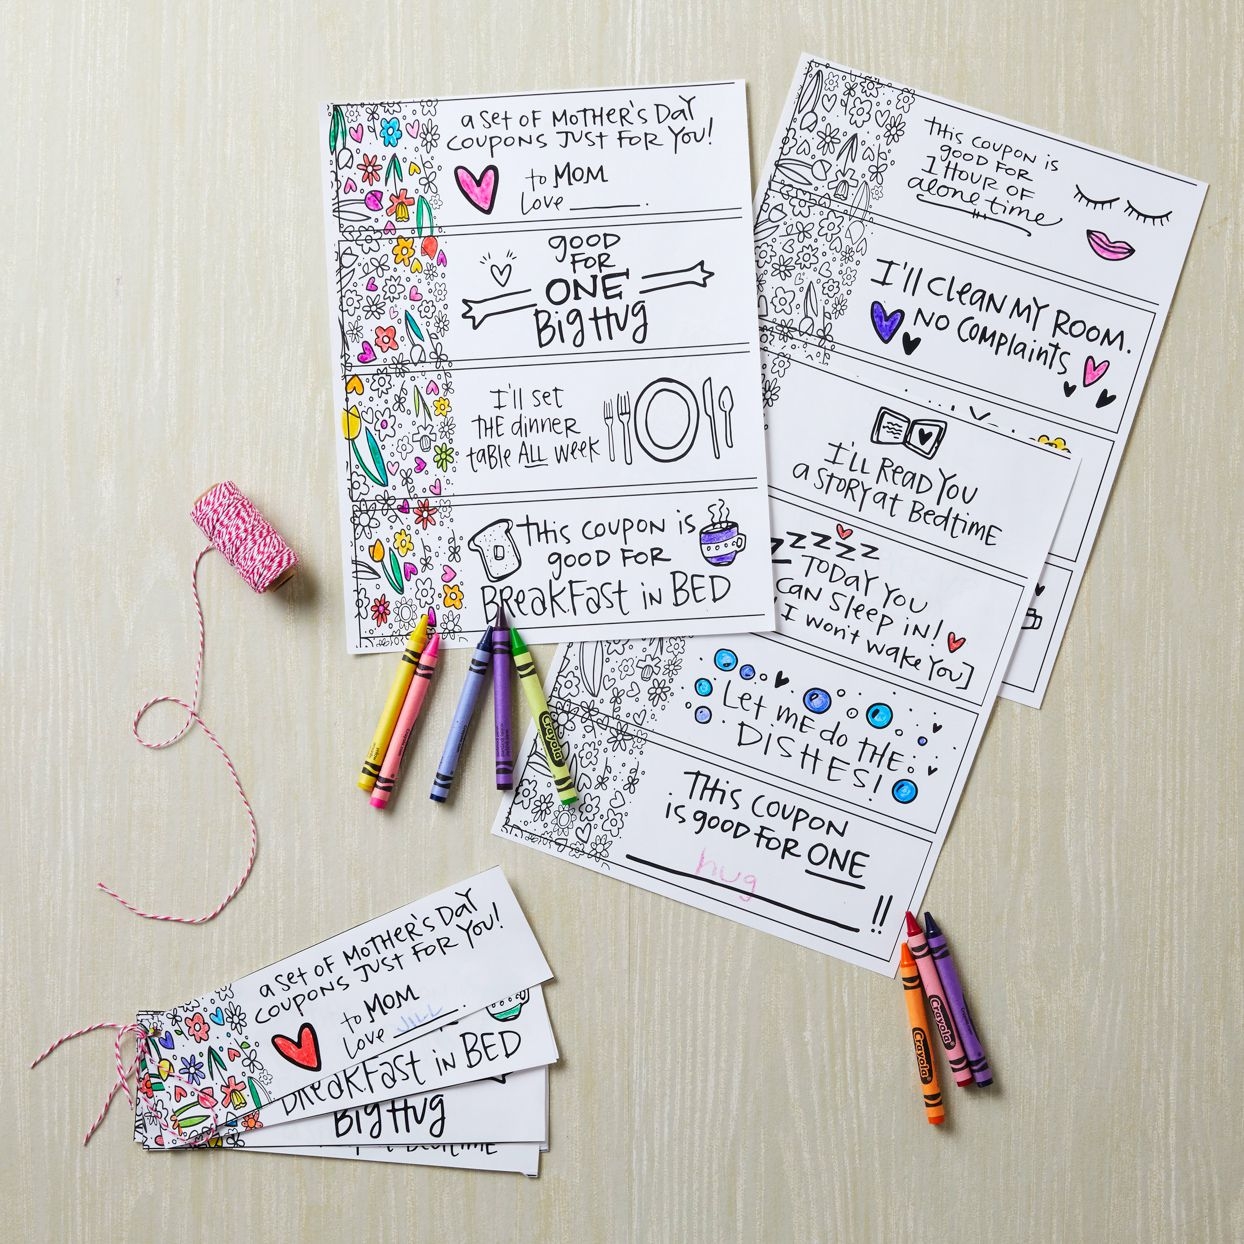 a set of Mother's Day
coupons just for you!
to Mom
Love
good
for
one
Big Hug
I'll set
the dinner
table all week
This coupon is
good for
Breakfast in Bed
This coupon is
good for
1 hour of
alone time
I'll clean my room.
no complaints
I'll read you
a story at bedtime
zzzzz
Today you
can sleep in!
I won't wake you]
Let me do the
dishes!
This coupon
is good for one
hug
!!
Crayola
Crayola
Crayola
a set of Mother's Day
coupons just for you!
to Mom
Love Jill
Breakfast in Bed
Big Hug
Bedtime